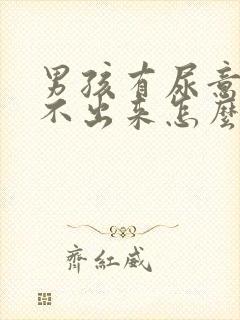 男孩有尿意
不出来怎麽
齊紅威